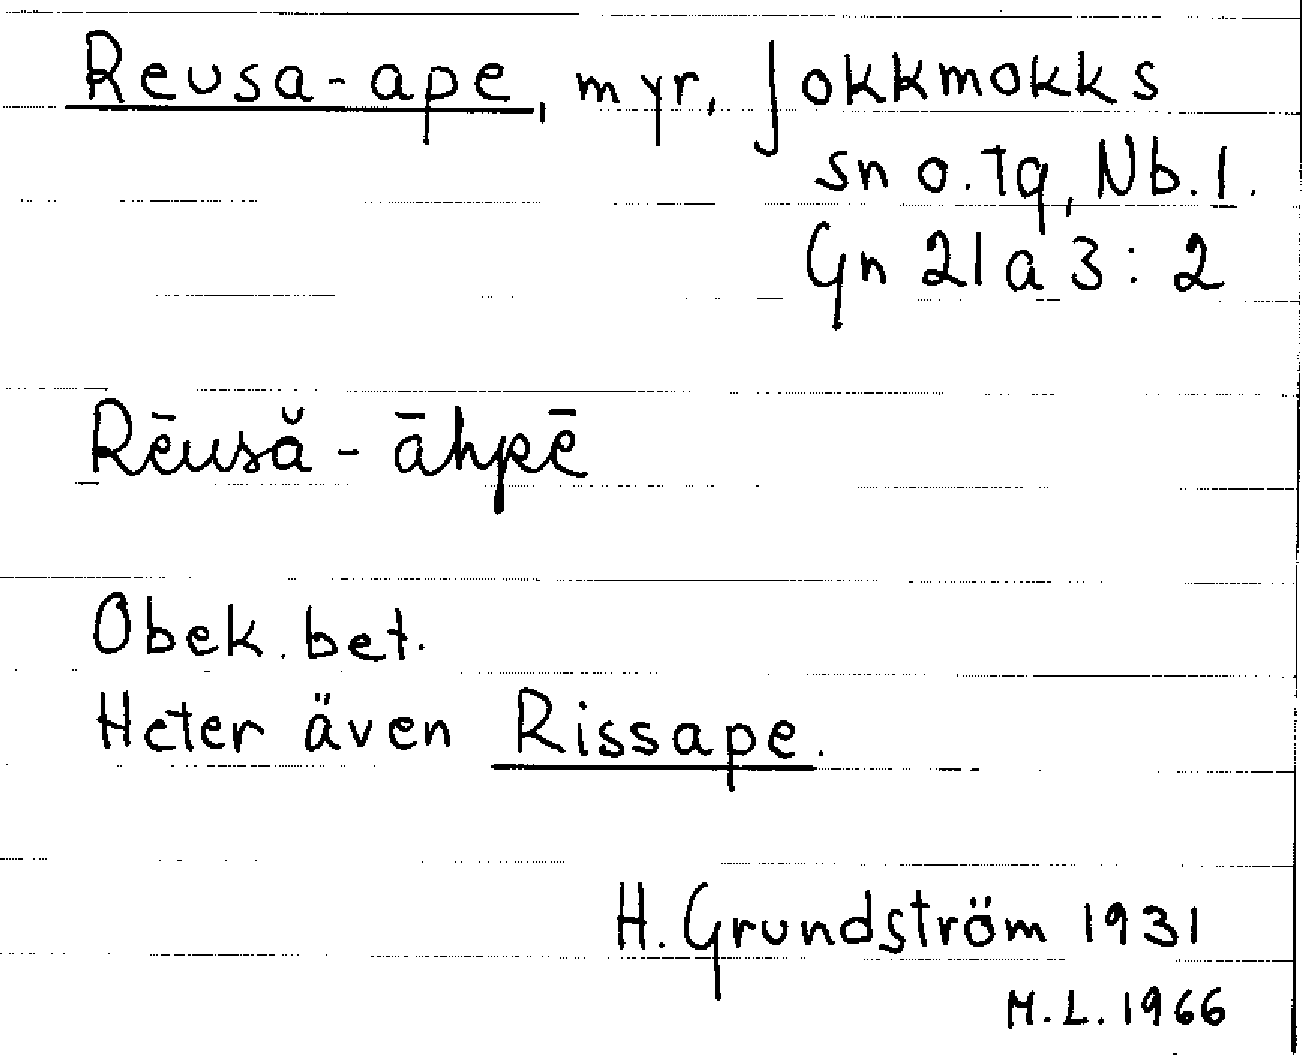 Reusa-ape, myr, Jokkmokks
sn o. tg, Nb. l.
Gn 21 a 3 : 2
Rēusă - āhpē
Obek. bet.
Heter även Rissape.
H. Grundström 1931
M. L. 1966